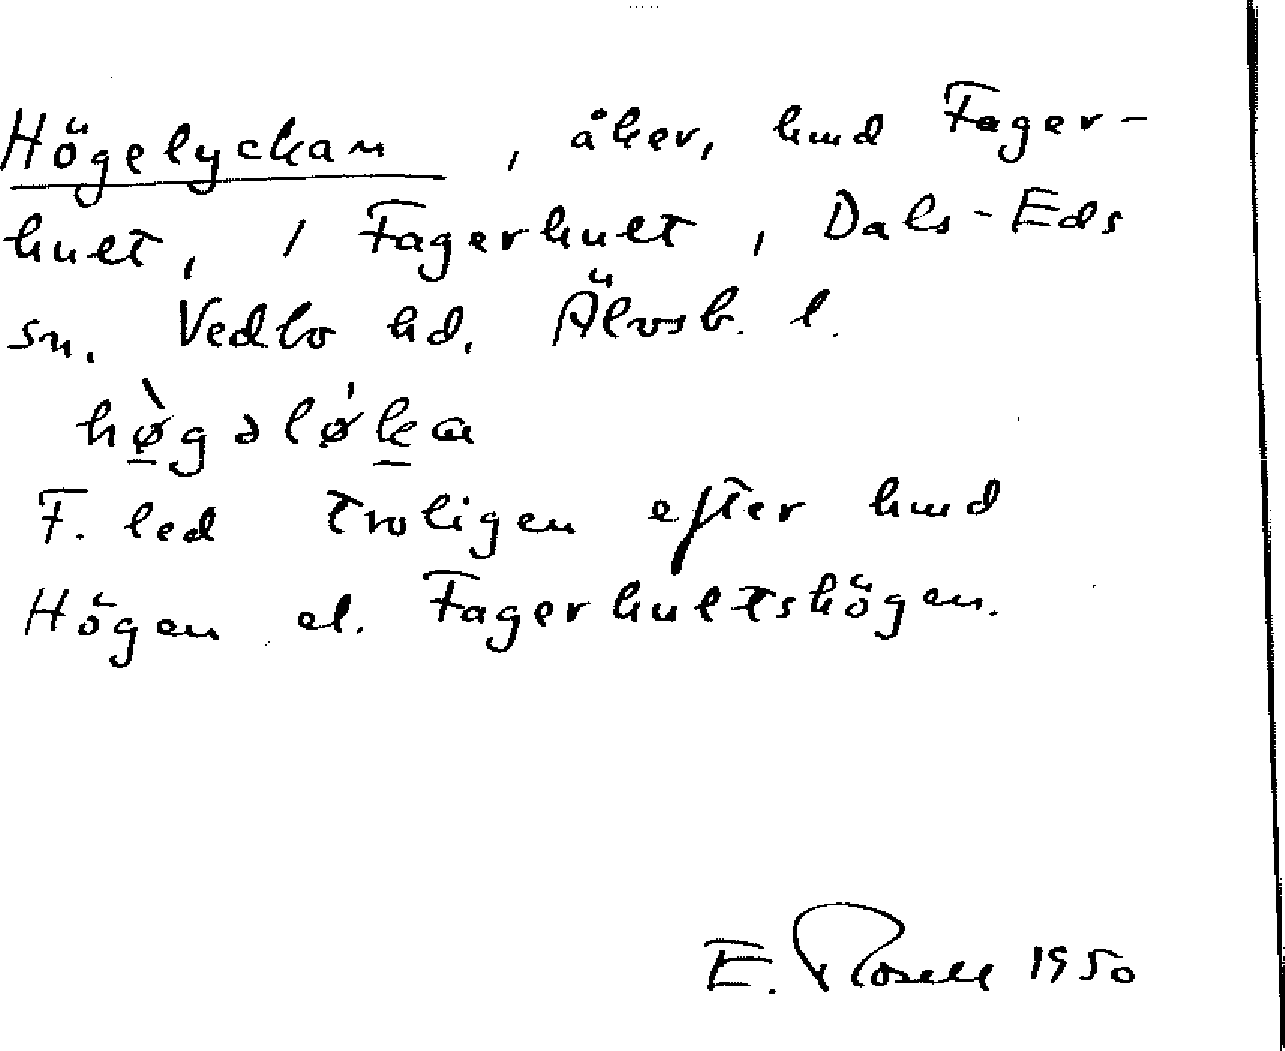 Högelyckan, åker, hmd Fager-
hult, 1 Fagerhult, Dals-Eds
sn. Vedbo hd. Älvsb. l.
hø̱̀gəlø̍ḵa
F. led troligen efter hmd
Högen el. Fagerhultshögen.
E. Rosell 1950